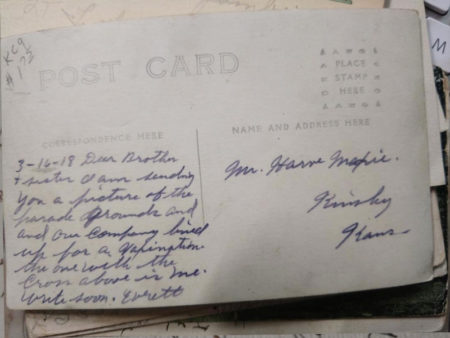 KC9
#172
POST CARD
PLACE
STAMP
HERE
CORRESPONDENCE HERE
NAME AND ADDRESS HERE
3-16-18 Dear Brother
+ sister I am sending
you a picture of the
parade grounds and
and our company lined
up for a
the one with the
cross above is me.
write soon. Everett
Mr. Harve
Kinsley
Kans
M